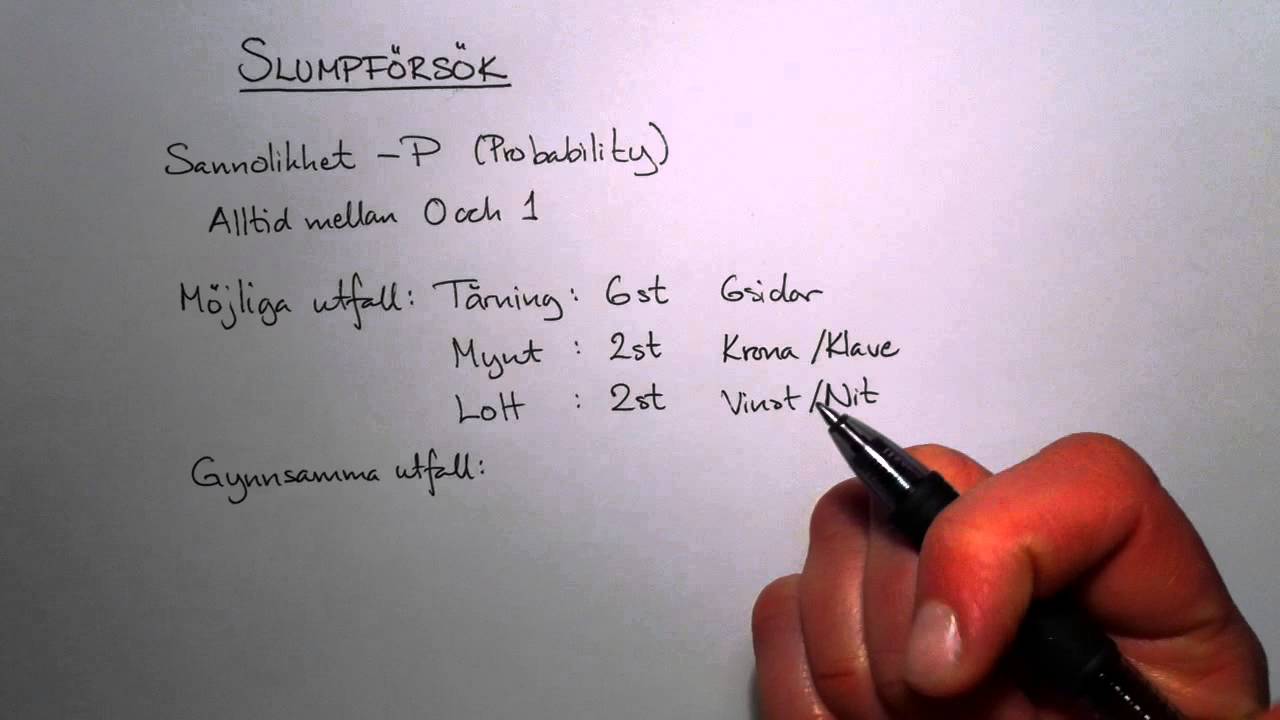 SLUMPFÖRSÖK
Sannolikhet - P (Probability)
Alltid mellan 0 och 1
Möjliga utfall: Tärning: 6st 6sidor
Mynt : 2st Krona/Klave
Lott : 2st Vinst/Nit
Gynnsamma utfall: